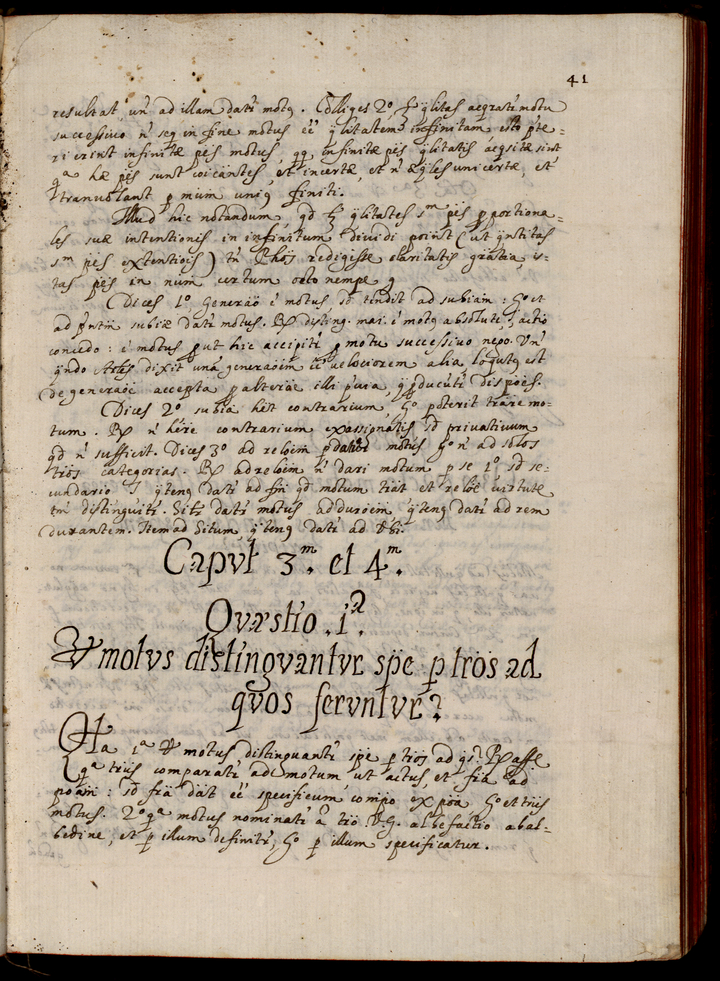 41
resultat, un ad illam dati motq. Colliges 2º, si qlitas aeqrati motu
successivo n seq in fine motus eē qlitatem infinitam esto pte=
rierint infinitæ pēs motus, qq infinitæ pēs qlitatis aeqsitæ sint
qª hæ pēs sunt coicāntes, et incertæ, et n æqles uni certæ, et
tranvolant p mūm uniq finiti.
Illud hic notandum, qd qlitates sm pēs pportiona=
les suæ intentionis in infinitum dividi poīnt (ut qntitas
sm pēs extentiōis) tn Phōs redigisse claritatis gratia, is=
tas pēs in num certum octo nempe
Dices 1º, generāō ē motus sd tendit ad subiam: go et
ad sbntm subiæ dati motus. Rx disting. mai. ē motq absolute, actio
concedo: ē motus put hic accipiti p motu successivo nego. Vn
qndo Arles dixit unā generaōem eē velociorem alia, loqutq est
de generāōe accepta p alteræ illi pvia, q pducuti dispōes.
Dices 2º subia hēt contrarium, go poterit trāre mo=
tum. Rx n hēre contrarium ex assignatis sd privativum
qd n sufficit. Dices 3º ad relōem pdati motus go n ad solos
triōs categorias. Rx ad relōem n dari motum p se 1º sd se=
cundario s qtenq dati ad fm qd motum trāt et relōe virtute
tm distinguiti. Siti dati motus ad duroēm qtenq dati ad rem
durantem. Item ad situm, qtenq dati ad Ubi.
Capvt 3.m et 4.m
Qvæstio .1.ª
Vt motvs distingvantvr spē p trōs ad
qvos fervntvr?
Qta 1ª Vt motus distinguanti spē p trōs ad qs? Rx affe
qª triīs comparati ad motum ut actus, et fra ad
poām: sd fra dāt eē specificum compo ex pōa, go et triīs
motus. 2º qª motus nominati ā trō. V.G. albefactio ab al=
bedine, et p illum definiti, go p illum specificatur.